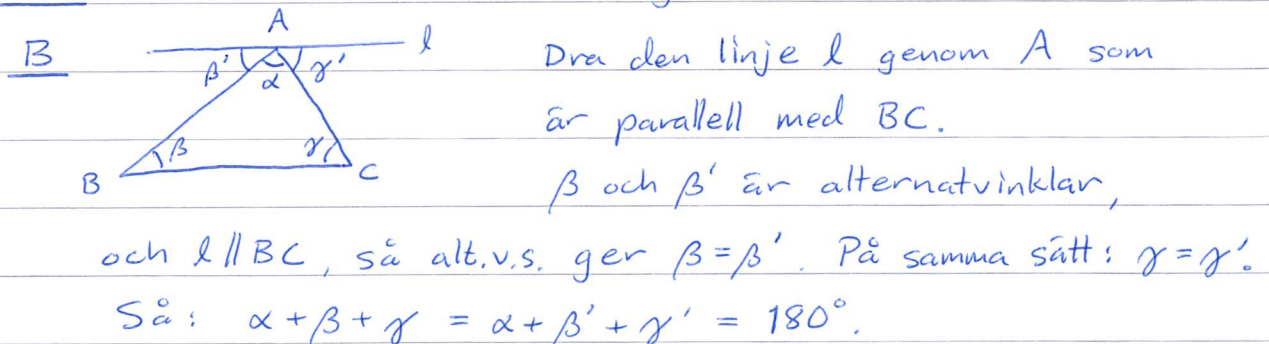 B
A
l
β' α γ'
β γ
B C
Dra den linje l genom A som
är parallell med BC.
β och β' är alternatvinklar,
och l // BC, så alt.v.s. ger β = β'. På samma sätt: γ = γ'.
Så: α + β + γ = α + β' + γ' = 180°.